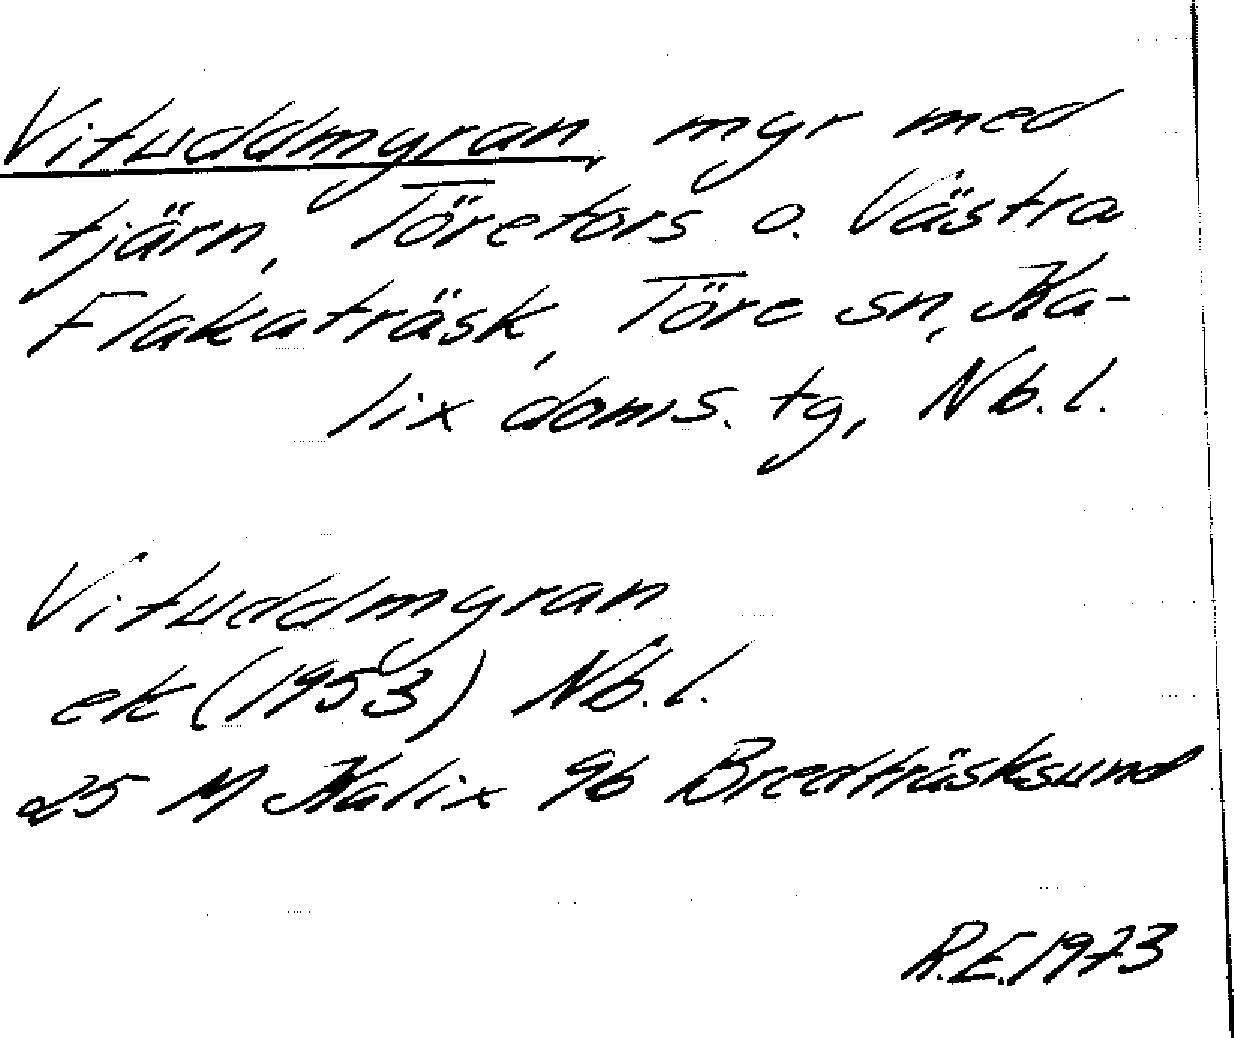 Vituddmyran, myr med
tjärn, Törefors o. Västra
Flakaträsk, Töre sn, Ka-
lix doms. tg, Nb. l.
Vituddmyran
ek (1953) Nb. l.
25 M Kalix 9b Bredträsksund
R.E. 1973